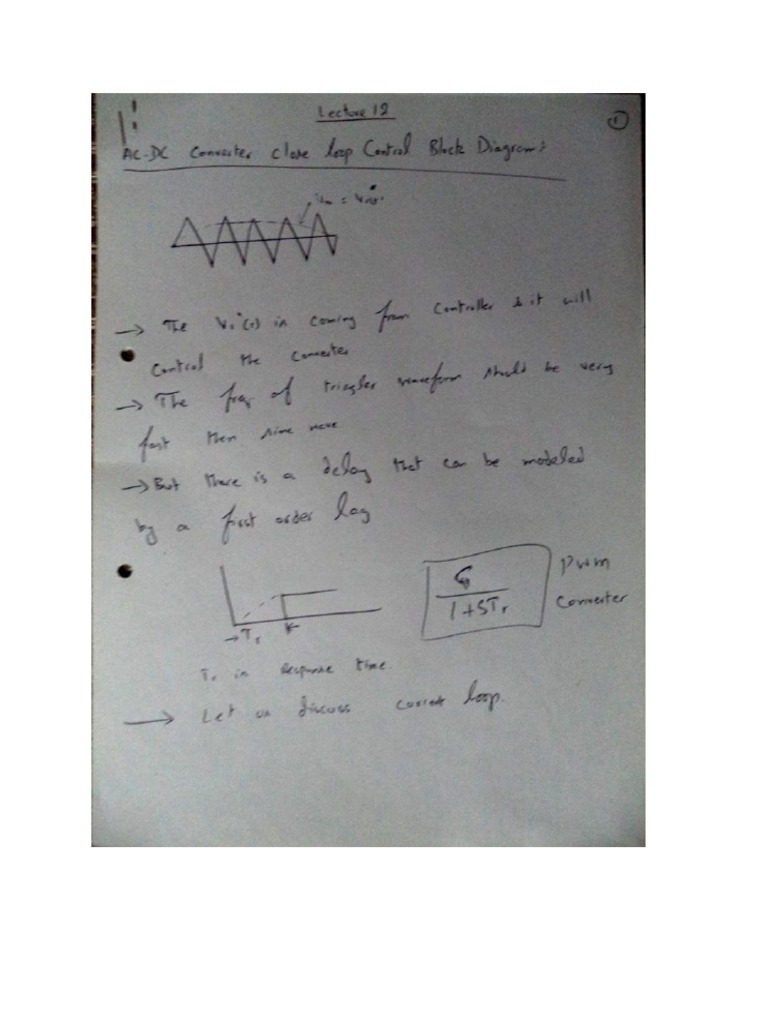 Lecture 12
1
AC-DC Converter close loop Control Block Diagram:
→ The Vi*(t) in coming from Controller & it will
control the converter
→ The freq of triegler waveform should be very
fast then sine wave
→ But there is a delay that can be modeled
by a first order lag
G
1+STr
PWM
Converter
→ Tr ←
Tr in Response time.
→ Let us discuss current loop.